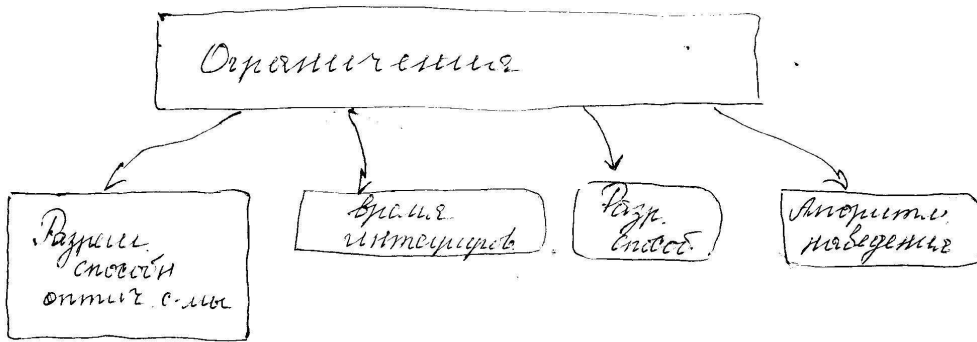 Ограничения
Разреш.
способн
оптич. с-мы
время
интегриров.
Разр.
способ.
Алгоритм
наведения